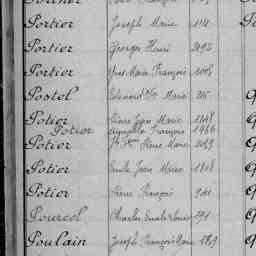 Portier Joseph Marie 114
Portier Georges Henri 2493
Portier Yves Marie François 1008
Postel Edouard Marie
Potier Pierre Jean Marie 1148
Potier Auguste François 1466
Potier Pierre Marie 2089
Potier Emile Jean Marie 1818
Potier Pierre François
Pourcel Charles 191
Poulain Joseph François Marie 1819